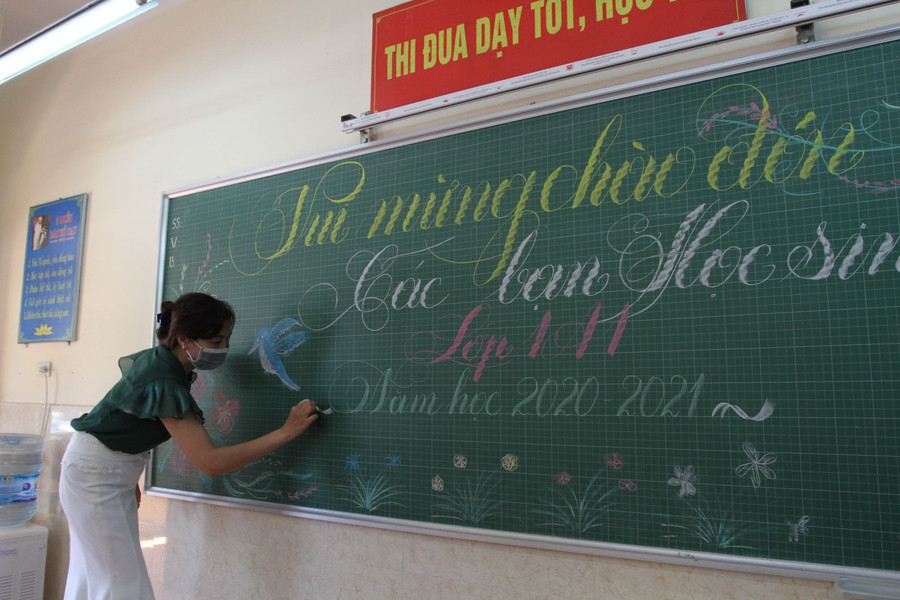 THI ĐUA DẠY TỐT, HỌC
SS:
V:
B
Vui mừng chào đón
Các bạn Học sin
Lớp 1 11
Năm học 2020-2021
5 ĐIỀU
BÁC HỒ DẠY